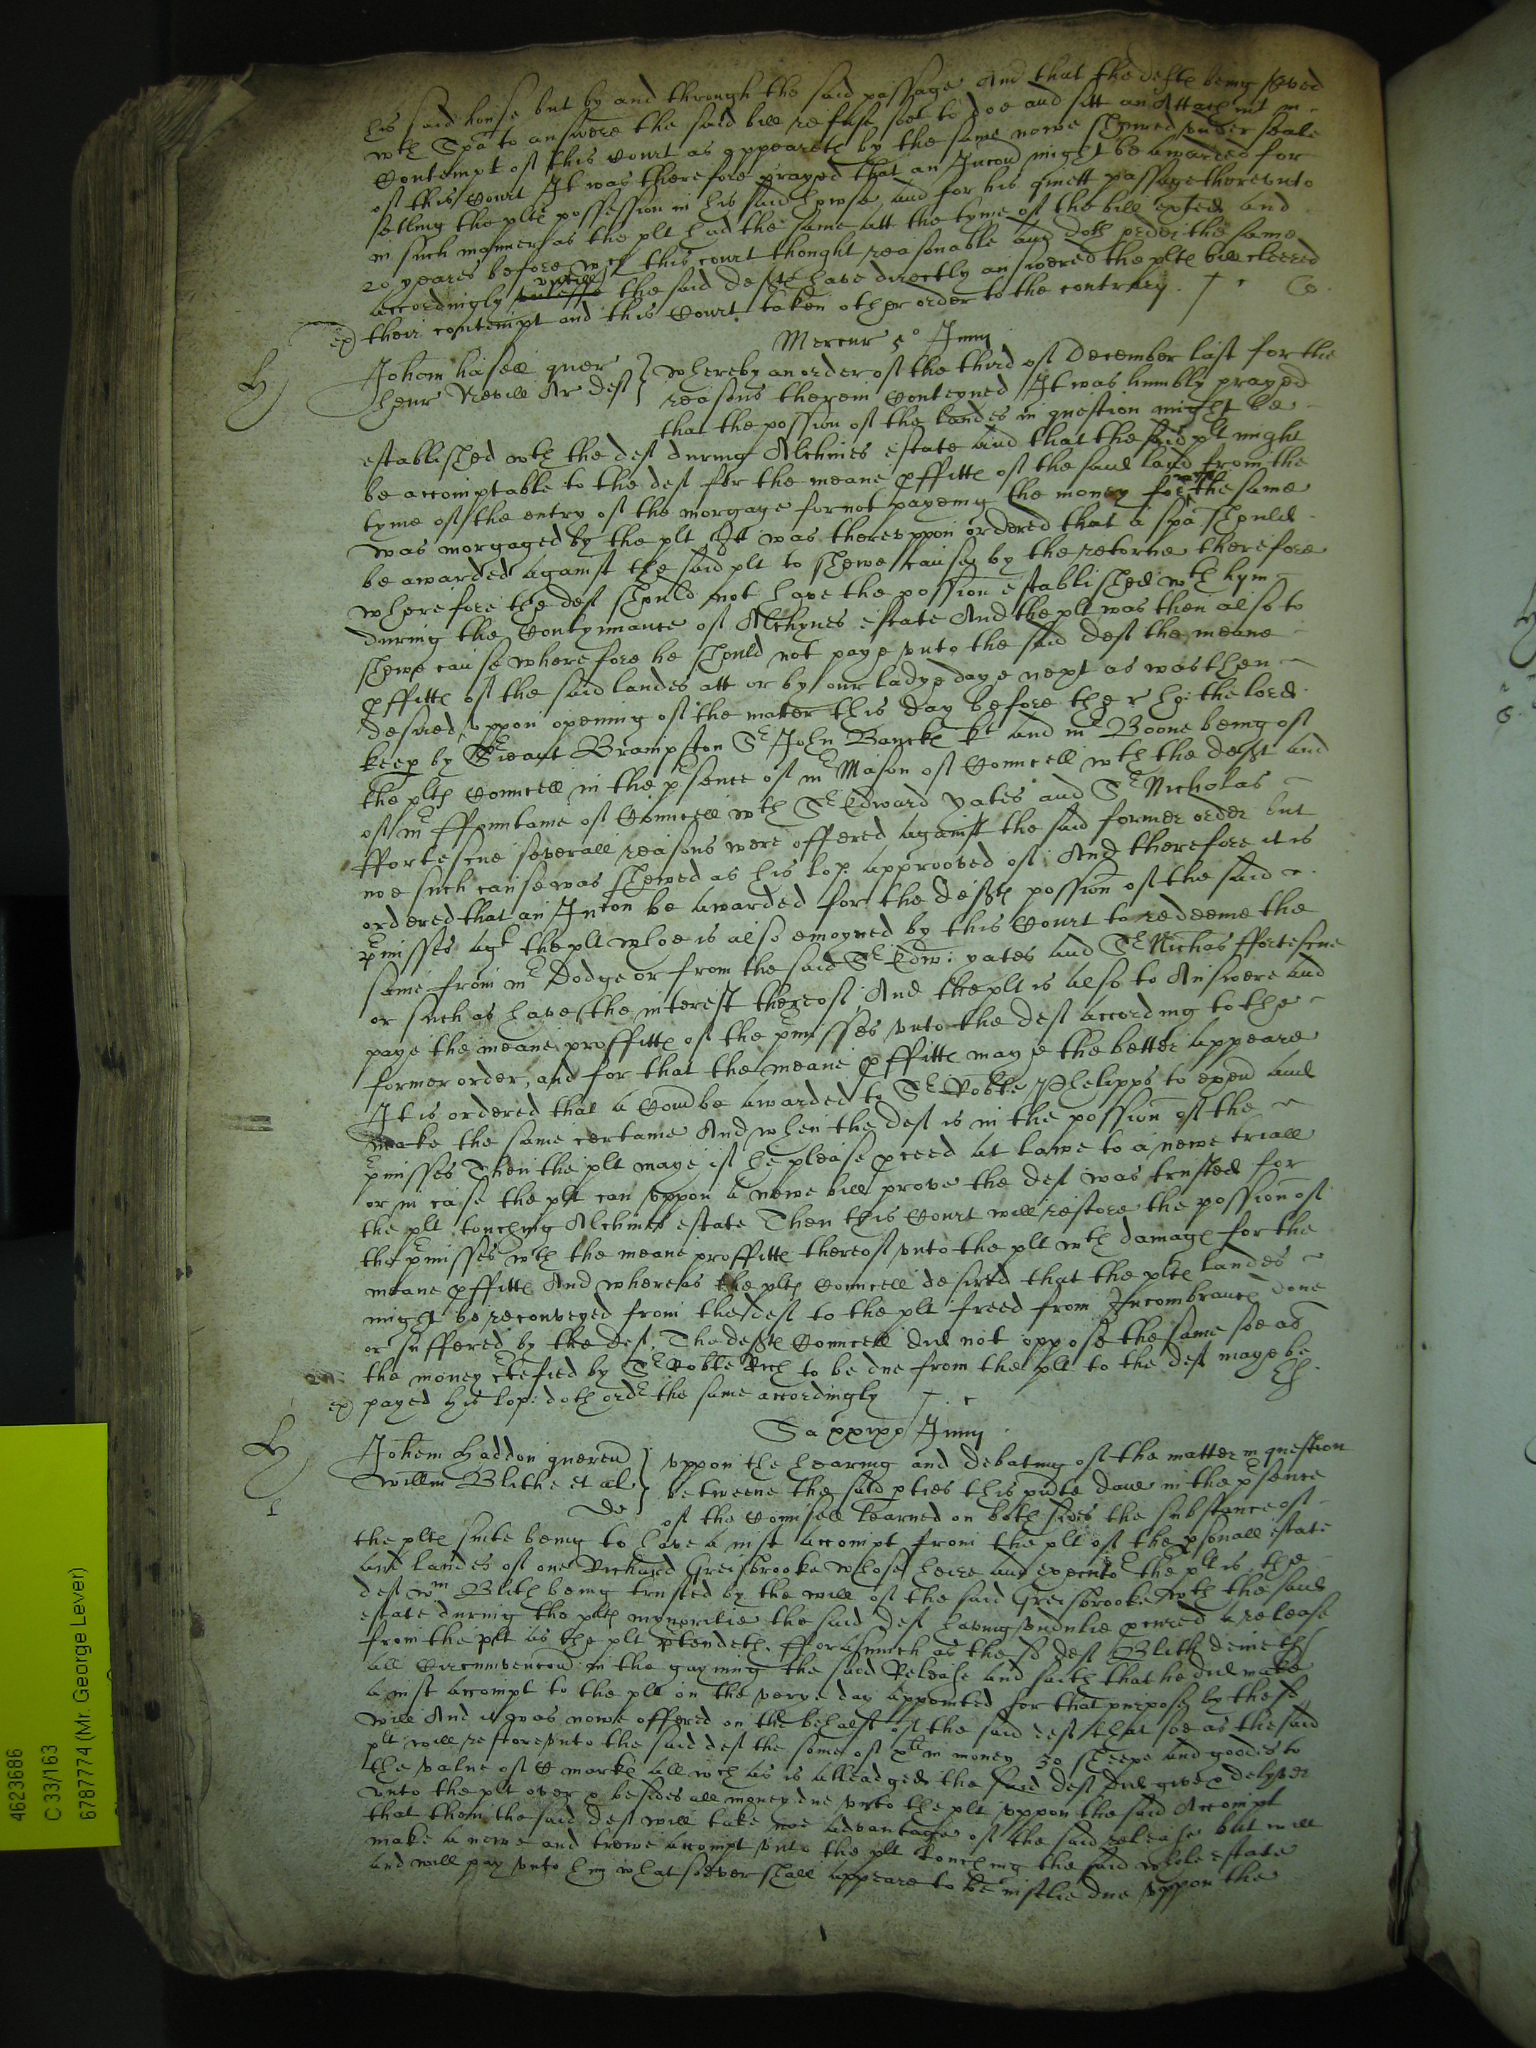 his said house but by and through the said passage And that the deftes being served
wth Spa to answere the said bill refuse soe to doe and sitt an Attachmt in
Contempt of this Court as appeareth by the same nowe shewed under seale
of this Court It was therefore prayed that an Iniuncon might be awarded for
setling the pltes possession in his said howse and for his quiett passage thereunto
in such manner as the plt had the same att the tyme of the bill exhited and
20 yeares before wch this court thought reasonable and doth order the same
accordingly untill the said deftes have directly answered the pltes bill cleered
their contempt and this Court taken other order to the contrary.
Mercur 5o Junij
Johem hasell quer
Henr Nevill Ar deft
whereby an order of the third of December last for the
reasons therein Conteyned It was humbly prayed
that the possion of the landes in question might be
established wth the deft during Alchines estate and that the said plt might
be accomptable to the deft for the meane pffittes of the said land from the
tyme of the entry of the morgage for not payeing the money for wch the same
was morgaged by the plt It was thereuppon ordered that a Spa should
be awarded against the said plt to shewe cause by the retorne therefore
wherefore the deft should not have the possion established wth hym
during the Contynuance of Alchynes estate And the plt was then also to
shewe cause wherefore he should not paye unto the said deft the meane
pffittes of the said landes att or by our ladye daye next as was then
desired, uppon opening of the matter this day before the r. ho: the lord
keep by Srieant Brampston Sr John Banckes kt and mr Boone being of
the pltes Councell in the psence of mr Mason of Councell wth the deft and
of mr ffountaine of Councell wth Sr Edward yates and Sr Nicholas
ffortescue severall reasons were offered against the said former order but
noe such cause was shewed as his lop: approoved of; And therefore it is
ordered that an Inion be awarded for the deftes possion of the said
pmisses agt the plt whoe is also enioyned by this Court to redeeme the
same from mr Dodge or from the said Sr Edw: yates and Sr Nichas ffortescue
or such as have the interest thereof, And the plt is also to Answere and
paye the meane proffittes of the pmisses unto the deft according to the
former order, and for that the meane pffittes maye the better appeare
It is ordered that a Comn be awarded to Sr Robte Phelipps to exend and
make the same certaine And when the deft is in the possion of the
pmisses Then the plt maye if he please pceed at lawe to a newe triall
or in case the plt can uppon a newe bill prove the deft was trusted for
the plt touching Alchines estate Then this Court will restore the possion of
the pmisses wth the meane proffittes thereof unto the plt wth damages for the
meane pffittes And whereas the pltes Councell desired that the pltes landes
might be reconveyed from the deft to the plt freed from Incombrances done
or suffered by the deft, The deftes Councell did not oppose the same soe as
the money ctefied by Sr Robte Rich to be due from the plt to the deft maye be
payed his lop: doth order the same accordingly
Johem Haddon queren
Willm Blithe et al
de
uppon the hearing and debating of the matter in question
betweene the said pties this pnte daie in the psence
of the Counsell learned on both sides the substance of
the pltes suite being to have a iust accompt from the plt of the psonall estate
and landes of one Richard Greisbrooke whose heire and executor the plt is the
deft Wm Blith being trusted by the will of the said Greisbrooke wth the said
estate during the pltes mynoritie the said deft having undulie pcured a release
from the plt as the plt ptendeth. fforasmuch as the sd deft Blith denieth
all Circumvencon in the gayning the said Release and saith that he did make
a iust accompt to the plt on the verye day appointed for that purpose by the sd
will And it was nowe offered on the behalfe of the said deft that soe as the said
plt will restore unto the said deft the some of xli in money 30 sheepe and goodes to
the value of markes all wch as is alleadged the said deft did give & delyver
unto the plt over & besides all money due unto the plt uppon the said Accompt
that then the said deft will take noe advantage of the said release but will
make a newe and trewe accompt unto the plt touching the said whole estate
and will pay unto him whatsoever shall appeare to be iustlie due uppon the
4623686
C 33/163
6787774 (Mr. George Lever)